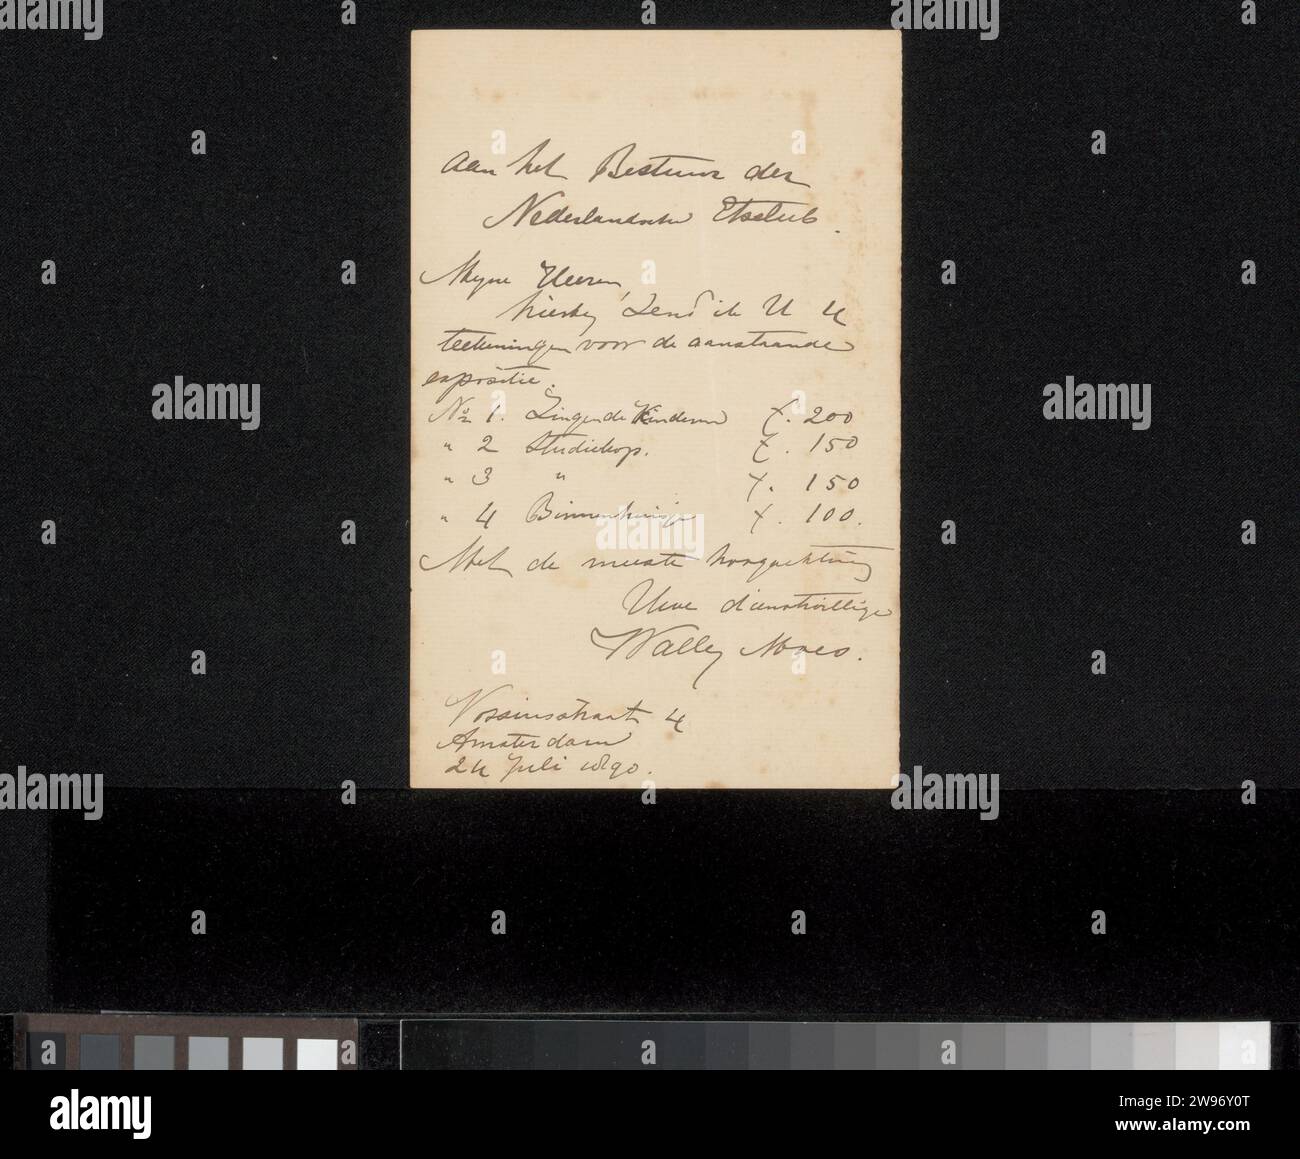 aan het Bestuur der
Nederlandsche Etsclub.
Myne Heeren,
hierby zend ik U 4
teekeningen voor de aanstaande
expositie.
No 1. Zingende Kinderen f. 200
" 2 Studiekop. f. 150
" 3 " f. 150
" 4 Binnenhuisje f. 100.
Met de meeste hoogachting
Uwe dienstwillige
Wally Moes.
Vossiusstraat 4
Amsterdam
24 Juli 1890.
alamy
Image ID: 2W96Y0T
www.alamy.com